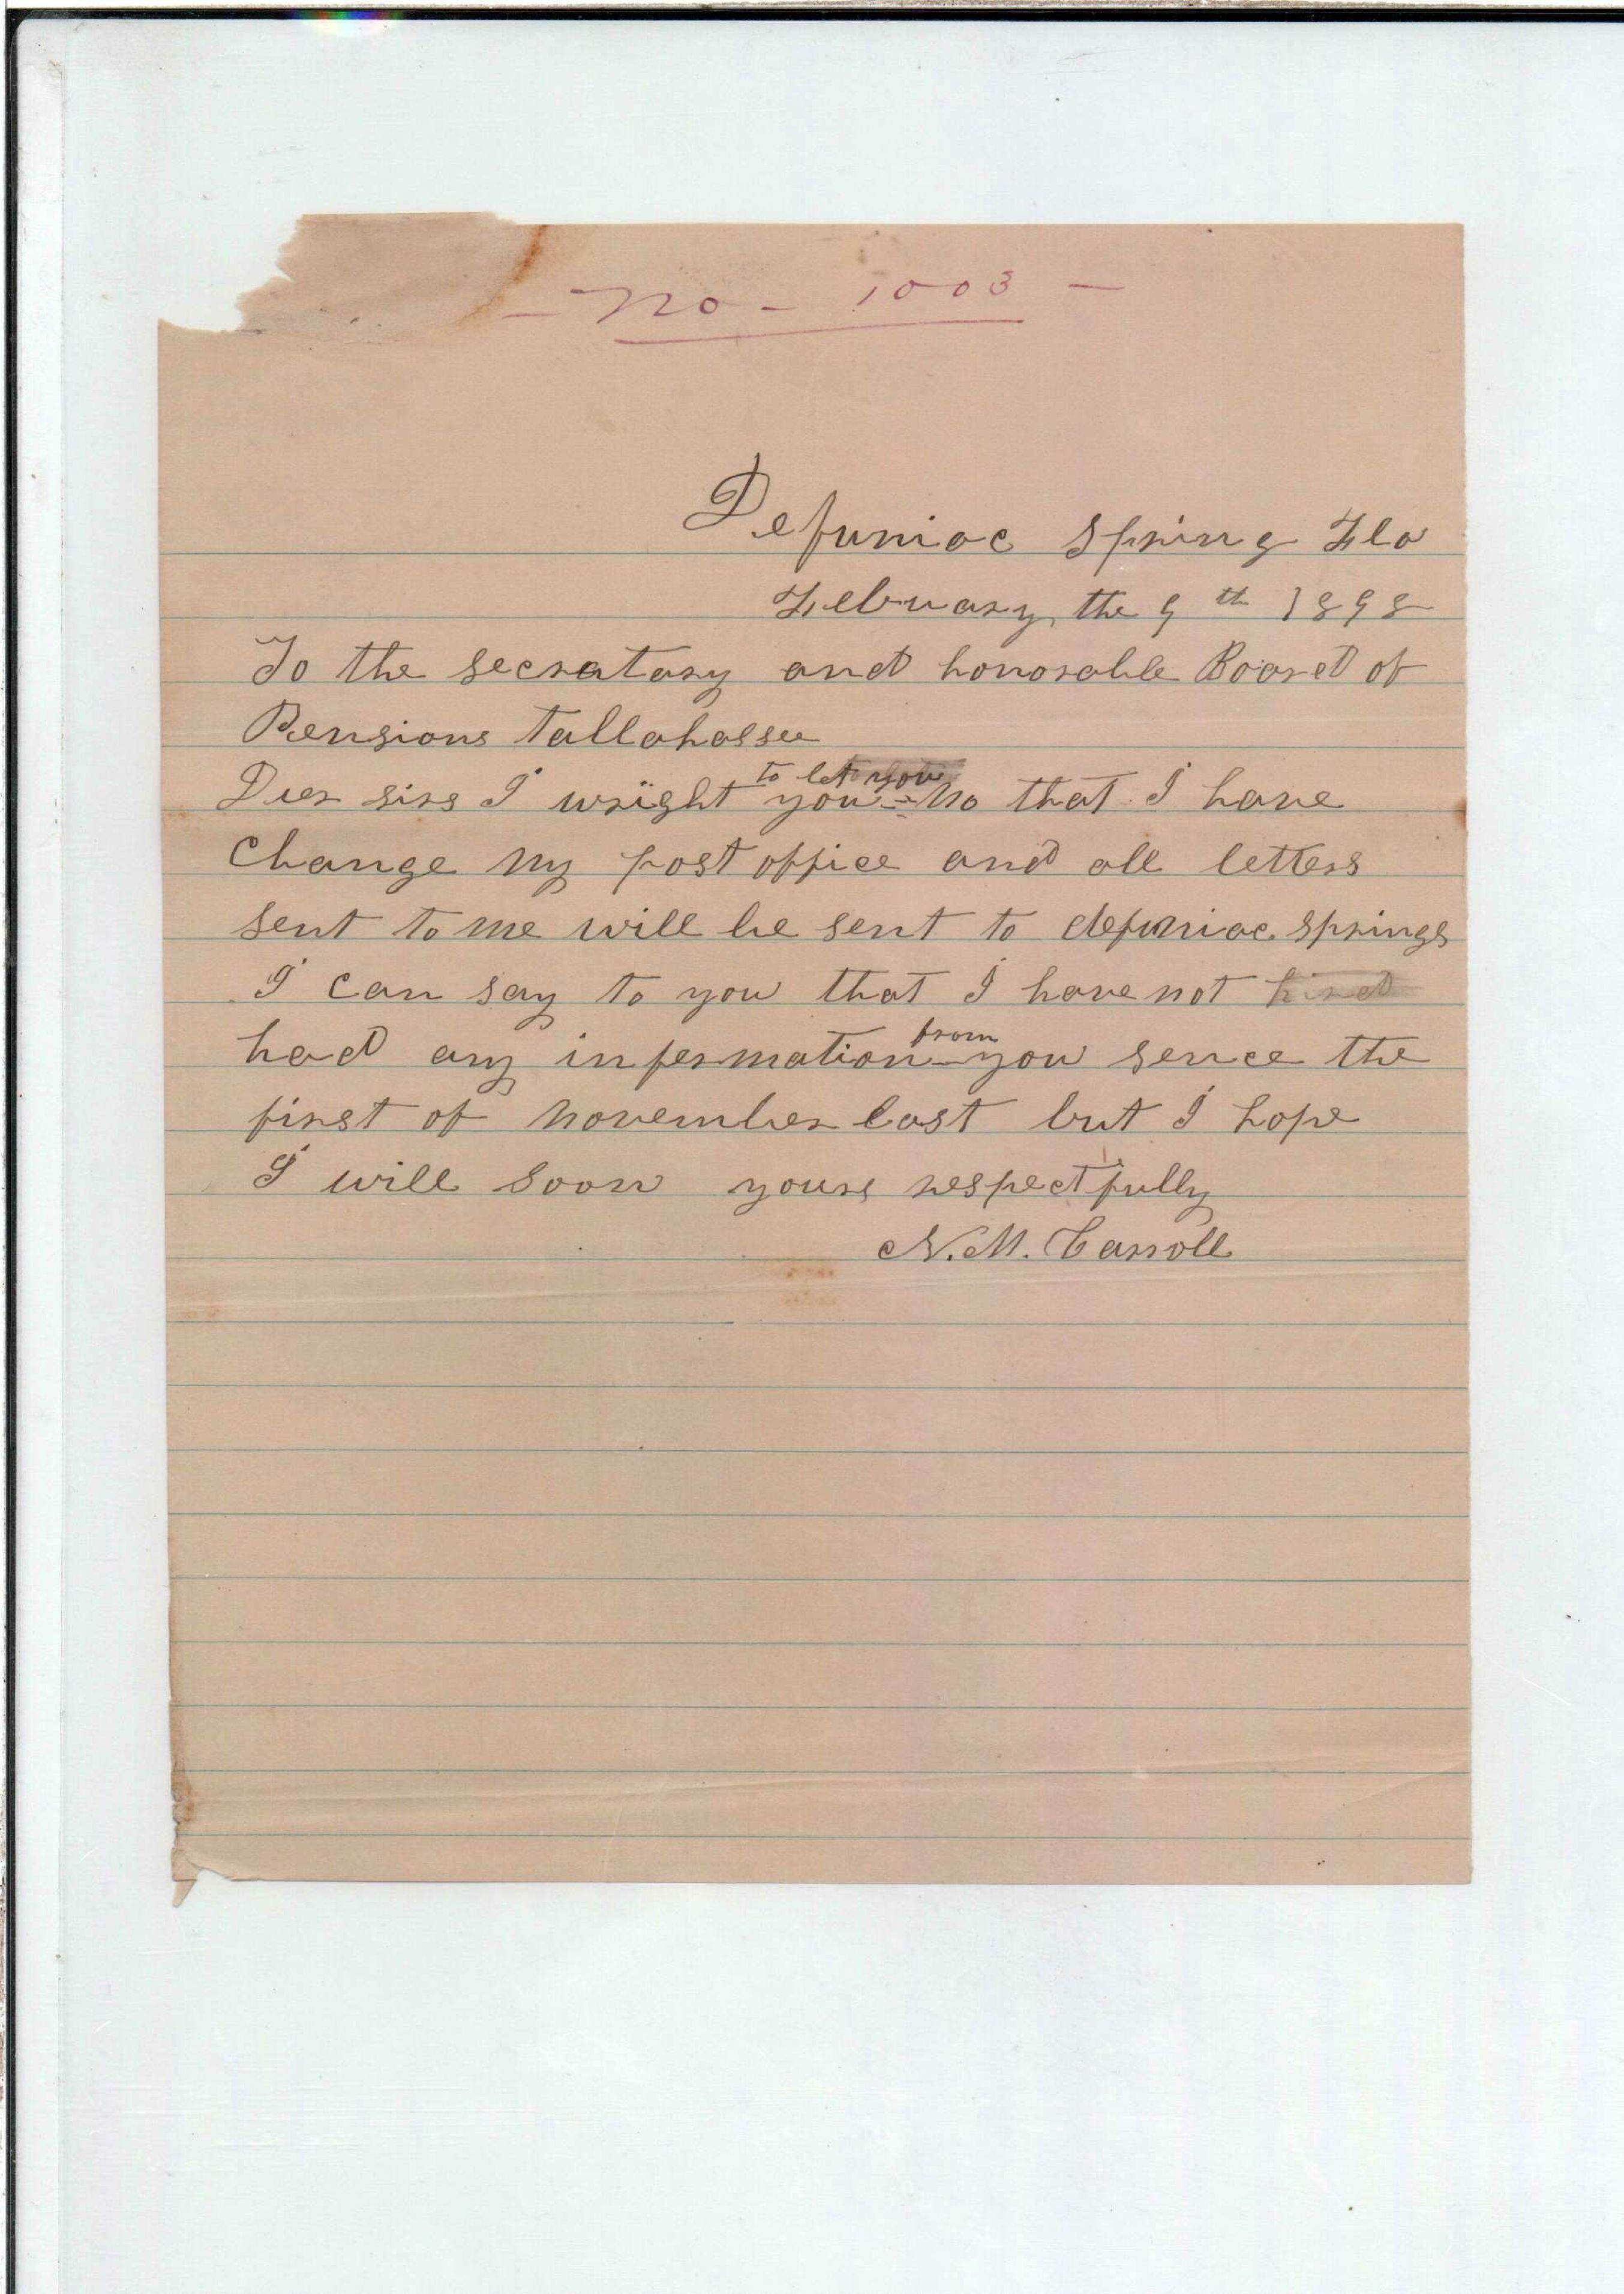 - No - 1003 -
Defuniac Spring Fla
February the 9th 1898
To the secratary and honorable Board of
Pensions Tallahassee
Dier sirs I wright you to let you no that I have
Change my post office and all letters
sent to me will be sent to defuniac springs
I can say to you that I have not
had any infermation from you sence the
first of november last but I hope
I will soon yours respectfully
N.M. Carroll